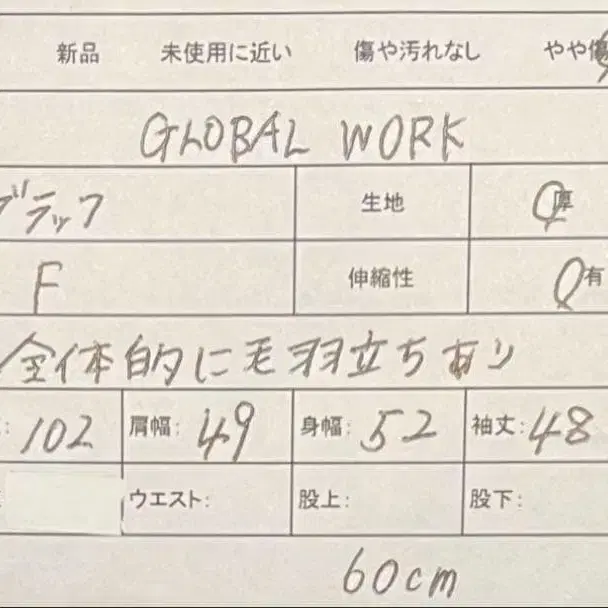 新品 未使用に近い 傷や汚れなし やや傷
GLOBAL WORK
ブラック 生地 厚
F 伸縮性 有
全体的に毛羽立ちあり
: 102 肩幅: 49 身幅: 52 袖丈: 48
ウエスト: 股上: 股下:
60cm